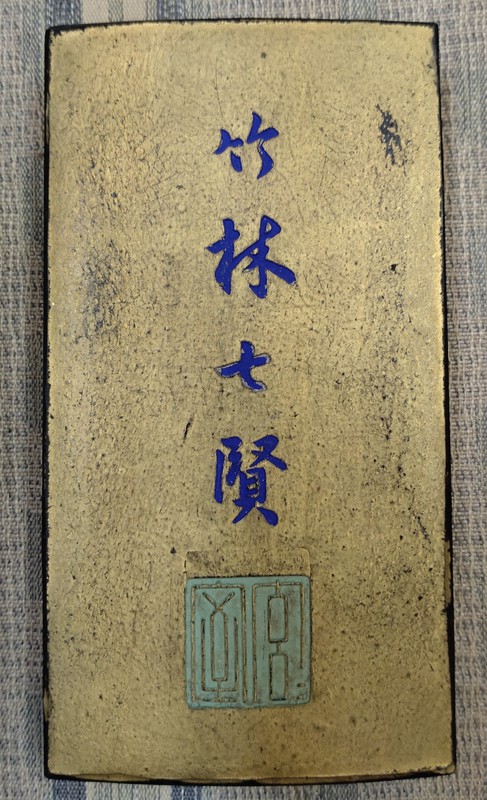 竹林七賢